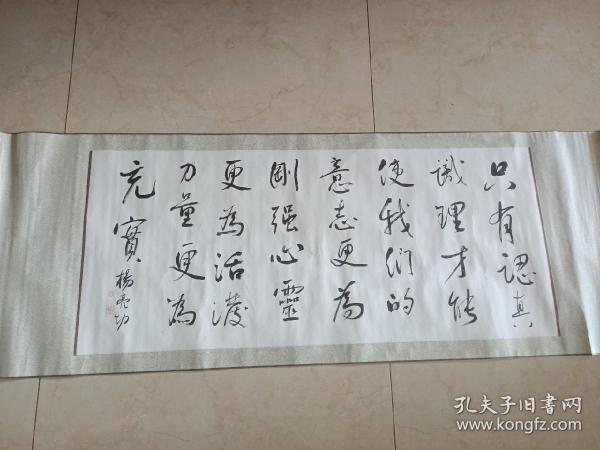 只有認真
識理才能
使我們的
意志更為
剛强心靈
更為活潑
力量更為
充實
楊亮功
孔夫子旧書网
www.kongfz.com